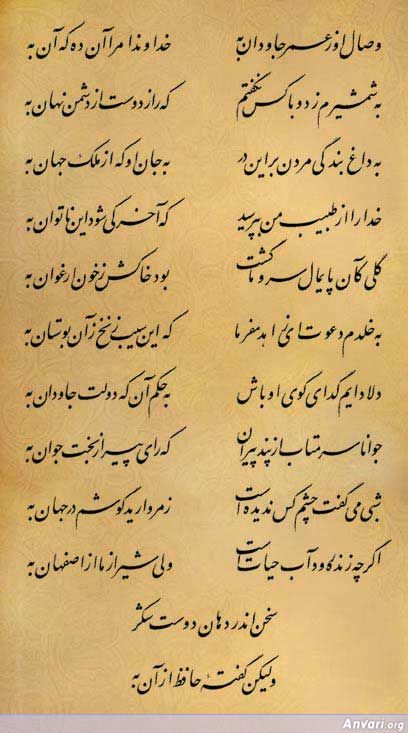 وصال او ز عمر جاودان به خداوندا مرا آن ده که آن به
به شمشیرم زد و با کس نگفتم که راز دوست از دشمن نهان به
به داغ بندگی مردن بر این در به جان او که از ملک جهان به
خدا را از طبیب من بپرسید که آخر کی شود این ناتوان به
گلی کان پایمال سرو ما گشت بود خاکش ز خون ارغوان به
به خلدم دعوت ای زاهد مفرما که این سیب زنخ زان بوستان به
دلا دایم گدای کوی او باش به حکم آن که دولت جاودان به
جوانا سر متاب از پند پیران که رای پیر از بخت جوان به
شبی می گفت چشم کس ندیده است ز مروارید گوشم در جهان به
اگر چه زنده رود آب حیات است ولی شیراز ما از اصفهان به
سخن اندر دهان دوست شکر
ولیکن گفته حافظ از آن به
Anvari.org